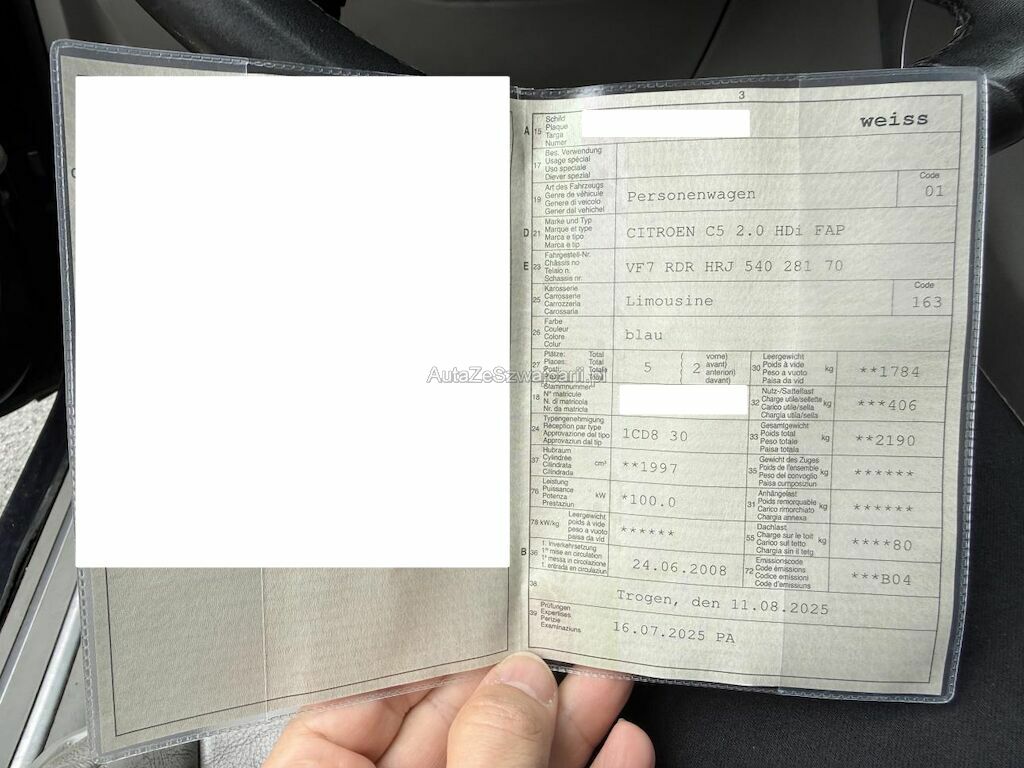 3
A 15 Schild
Plaque
Targa
Numer
weiss
17 Bes. Verwendung
Usage spécial
Uso speciale
Diever spezial
19 Art des Fahrzeugs
Genre de véhicule
Genere di veicolo
Gener dal vehichel
Personenwagen
Code
01
D 21 Marke und Typ
Marque et type
Marca e tipo
Marca e tip
CITROEN C5 2.0 HDi FAP
E 23 Fahrgestell-Nr.
Châssis no
Telaio n.
Schassis nr.
VF7 RDR HRJ 540 281 70
25 Karosserie
Carrosserie
Carrozzeria
Carossaria
Limousine
Code
163
26 Farbe
Couleur
Colore
Colur
blau
27 Plätze: Total
Places: Total
Posti: Totale
Total
5
( vorne)
avant)
anteriori)
( davant)
2
30 Leergewicht
Poids à vide
Peso a vuoto
Paisa da vid
kg
**1784
AutaZeSzwajcarii.pl
18 Stammnummer
N° matricule
N. di matricola
Nr. da matricla
32 Nutz-/Sattellast
Charge utile/sellette
Carico utile/sella
Chargia utila/sella
kg
***406
24 Typengenehmigung
Réception par type
Approvazione del tipo
Approvaziun dal tip
1CD8 30
33 Gesamtgewicht
Poids total
Peso totale
Paisa totala
kg
**2190
37 Hubraum
Cylindrée
Cilindrata
Cilindrada
cm³
**1997
35 Gewicht des Zuges
Poids de l'ensemble
Peso del convoglio
Paisa cumposiziun
kg
******
76 Leistung
Puissance
Potenza
Prestaziun
kW
*100.0
31 Anhängelast
Poids remorquable
Carico rimorchiato
Chargia annexa
kg
******
78 kW/kg
Leergewicht
poids à vide
peso a vuoto
paisa da vid
******
55 Dachlast
Charge sur le toit
Carico sul tetto
Chargia sin il tetg
kg
****80
B 36 1. Inverkehrsetzung
1re mise en circulation
1a messa in circolazione
1. entrada en circulaziun
24.06.2008
72 Emissionscode
Code émissions
Codice emissioni
Code d'emissiuns
***B04
38
Trogen, den 11.08.2025
39 Prüfungen
Expertises
Perizie
Examinaziuns
16.07.2025 PA